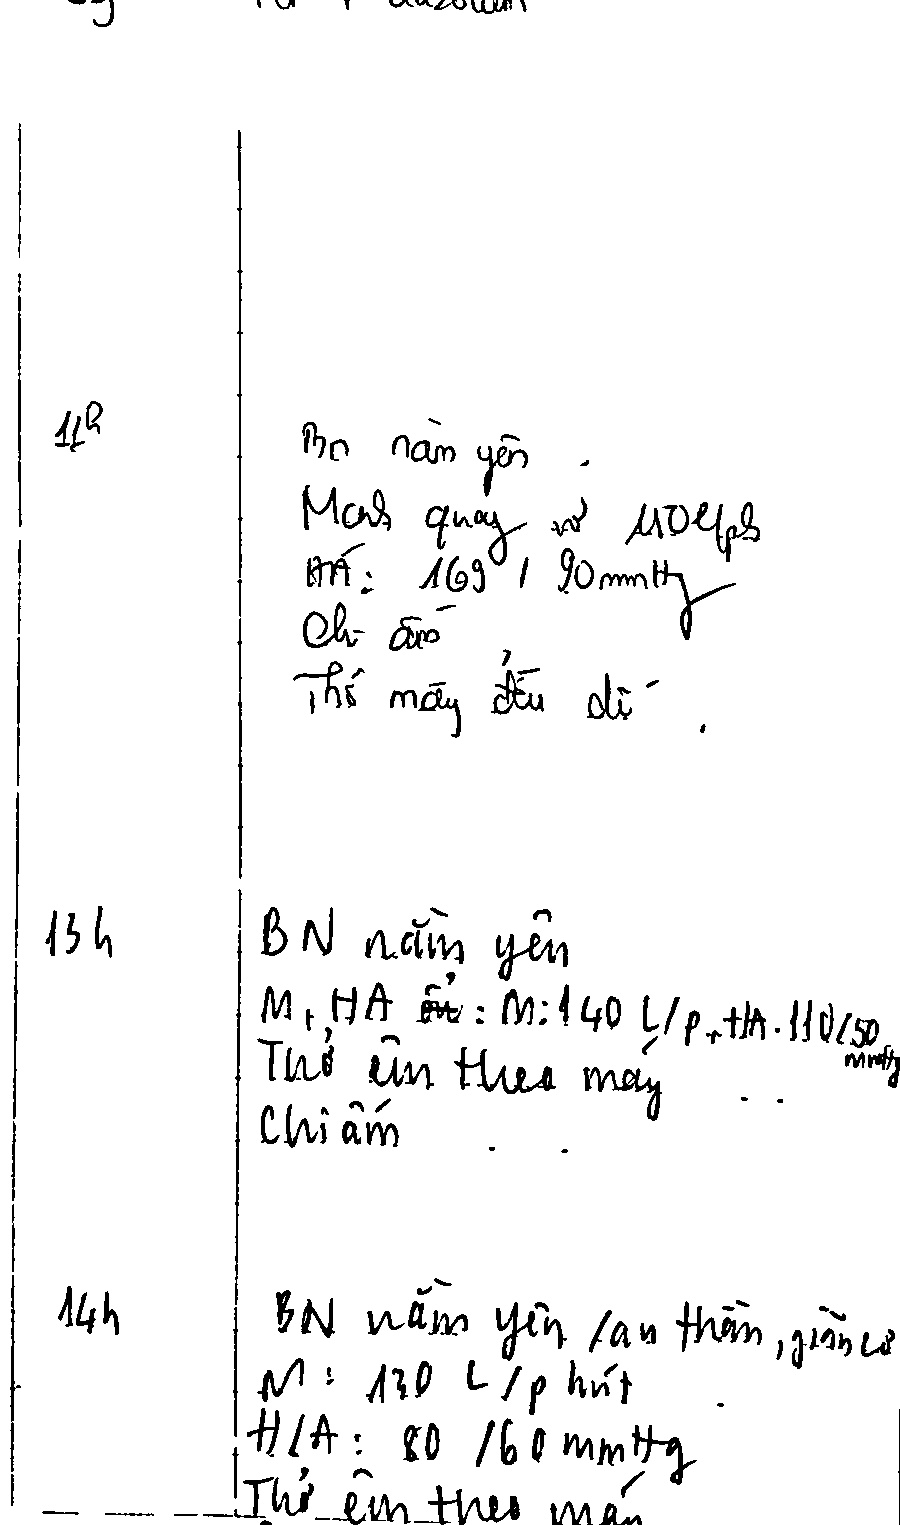 11h
Bn nằm yên.
Mạch quay rõ 110 l/ph
HA: 169 / 90mmHg
Chi ấm
Thở máy đều
13h
BN nằm yên
M, HA ổn: M: 140 L/p, HA. 110/50 mmHg
Thở êm theo máy
Chi ấm
14h
BN nằm yên /an thần, giãn cơ
M: 130 L/phút
H/A: 80 /60 mmHg
Thở êm theo máy